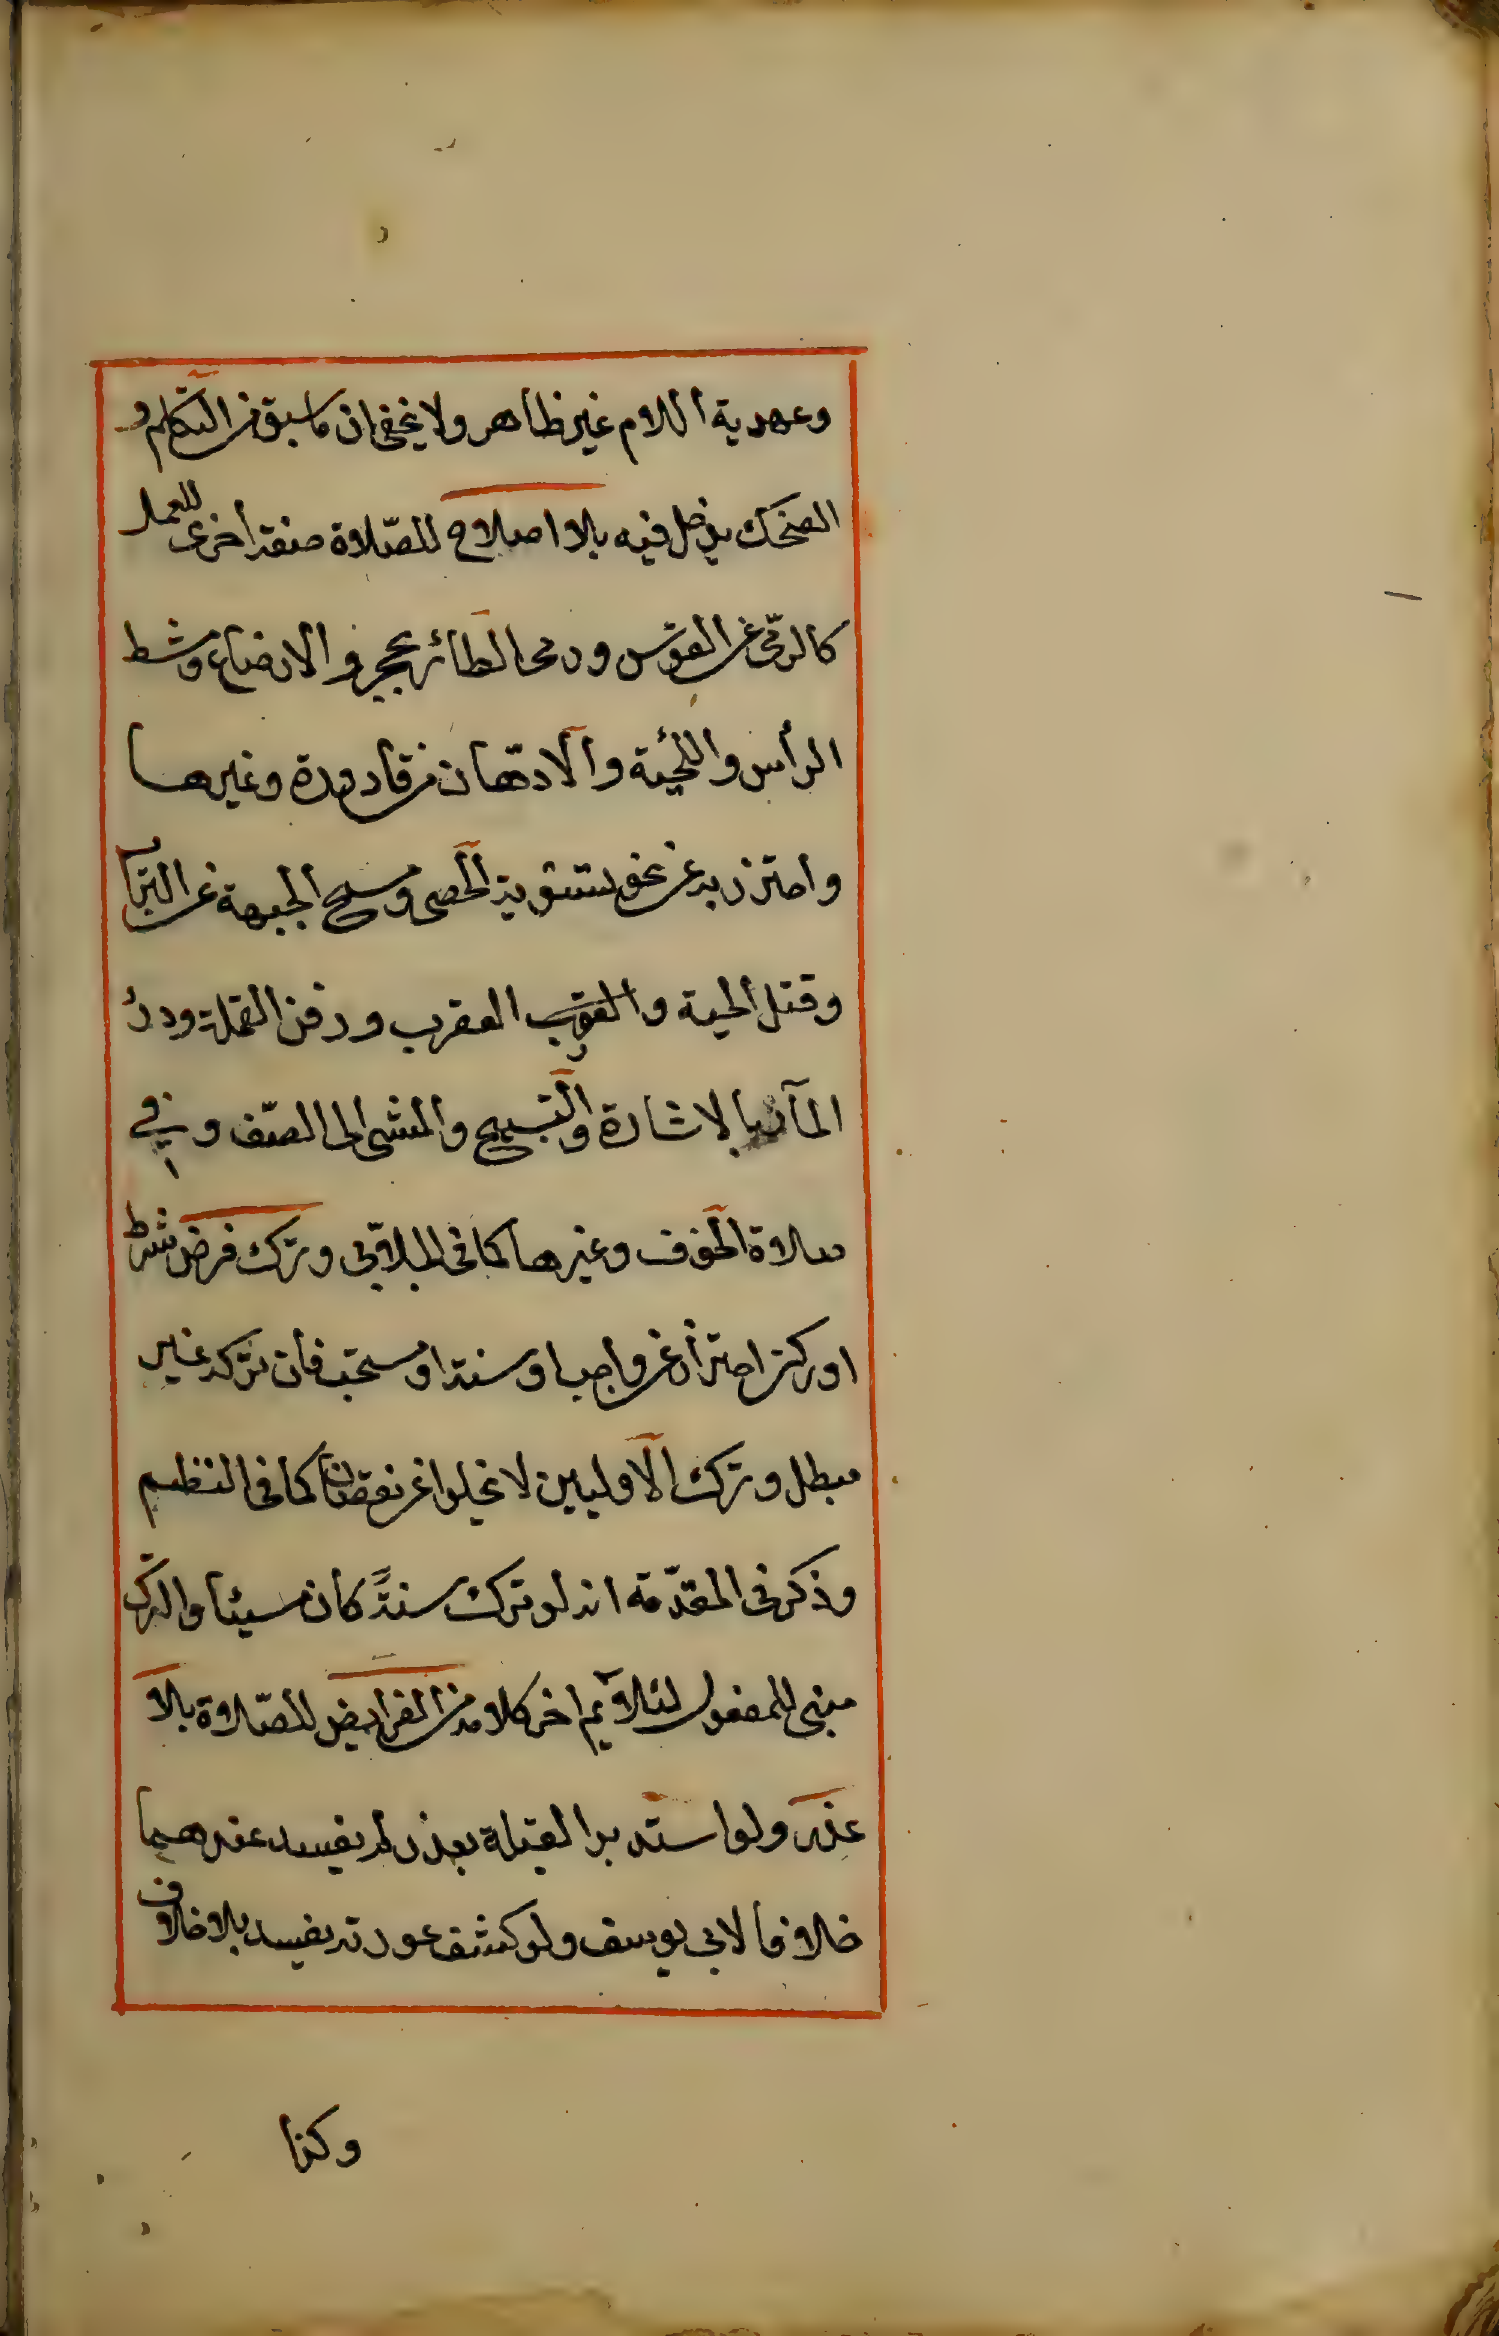 وعهدية اللام غير ظاهر ولا يخفى ان ما سبق من التكلم و
الضحك يدخل فيه بلا اصلاح للصّلاة صفة أخرى للعمل
كالرّمى عن القوس ورمى الطائر بحجر والارضاع ومشط
الرأس واللّحية والادّهان من قارورة وغيرها
واحترز به عن نحو تسوية الحصى ومسح الجبهة عن التراب
وقتل الحية والعقرب العقرب ودفن القملة ودرئ
المآر بالاشارة والتسبيح والمشى الى الصّف وفي
صلاة الخوف وغيرها كما فى الجلابى وترك فرض شرط
او ركن احترأز عن واجب او سنة او مستحب فان تركه غير
مبطل وترك الاوليين لا يخلوا عن نقصان كما فى النظم
وذكر فى المقدّمة انه لو ترك سنةً كان مسيئا والترك
مبنى للمفعول لئلا يم اخر كلامه من الفرايض للصّلاة بلا
عذر ولو استدبر القبلة بعذر لم يفسد عندهما
خلافا لابى يوسف ولو كشف عورته يفسد بلا خلاف
وكذا